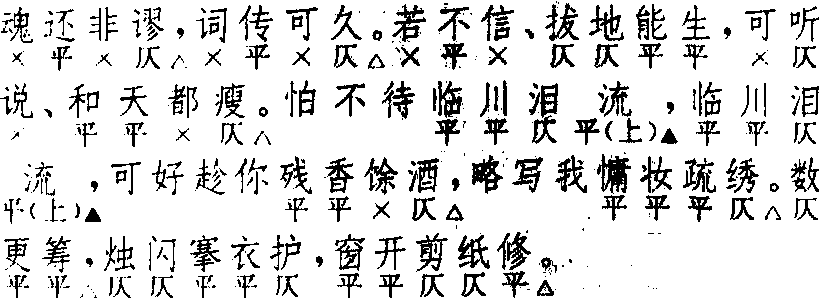 魂还非谬，词传可久。若不信、拔地能生，可听
× 平 × 仄△ × 平 × 仄△ × 平 × 仄 仄 平 平 × 仄
说、和天都瘦。怕不待临川泪流，临川泪
× 平 平 × 仄△ 平 平 仄 平(上)▲ 平 平 仄
流，可好趁你残香馀酒，略写我慵妆疏绣。数
平(上)▲ 平 平 × 仄△ 平 平 平 仄△ 仄
更筹，烛闪搴衣护，窗开剪纸修。
平 平△ 仄 仄 平 平 仄 平 平 仄 仄 平△